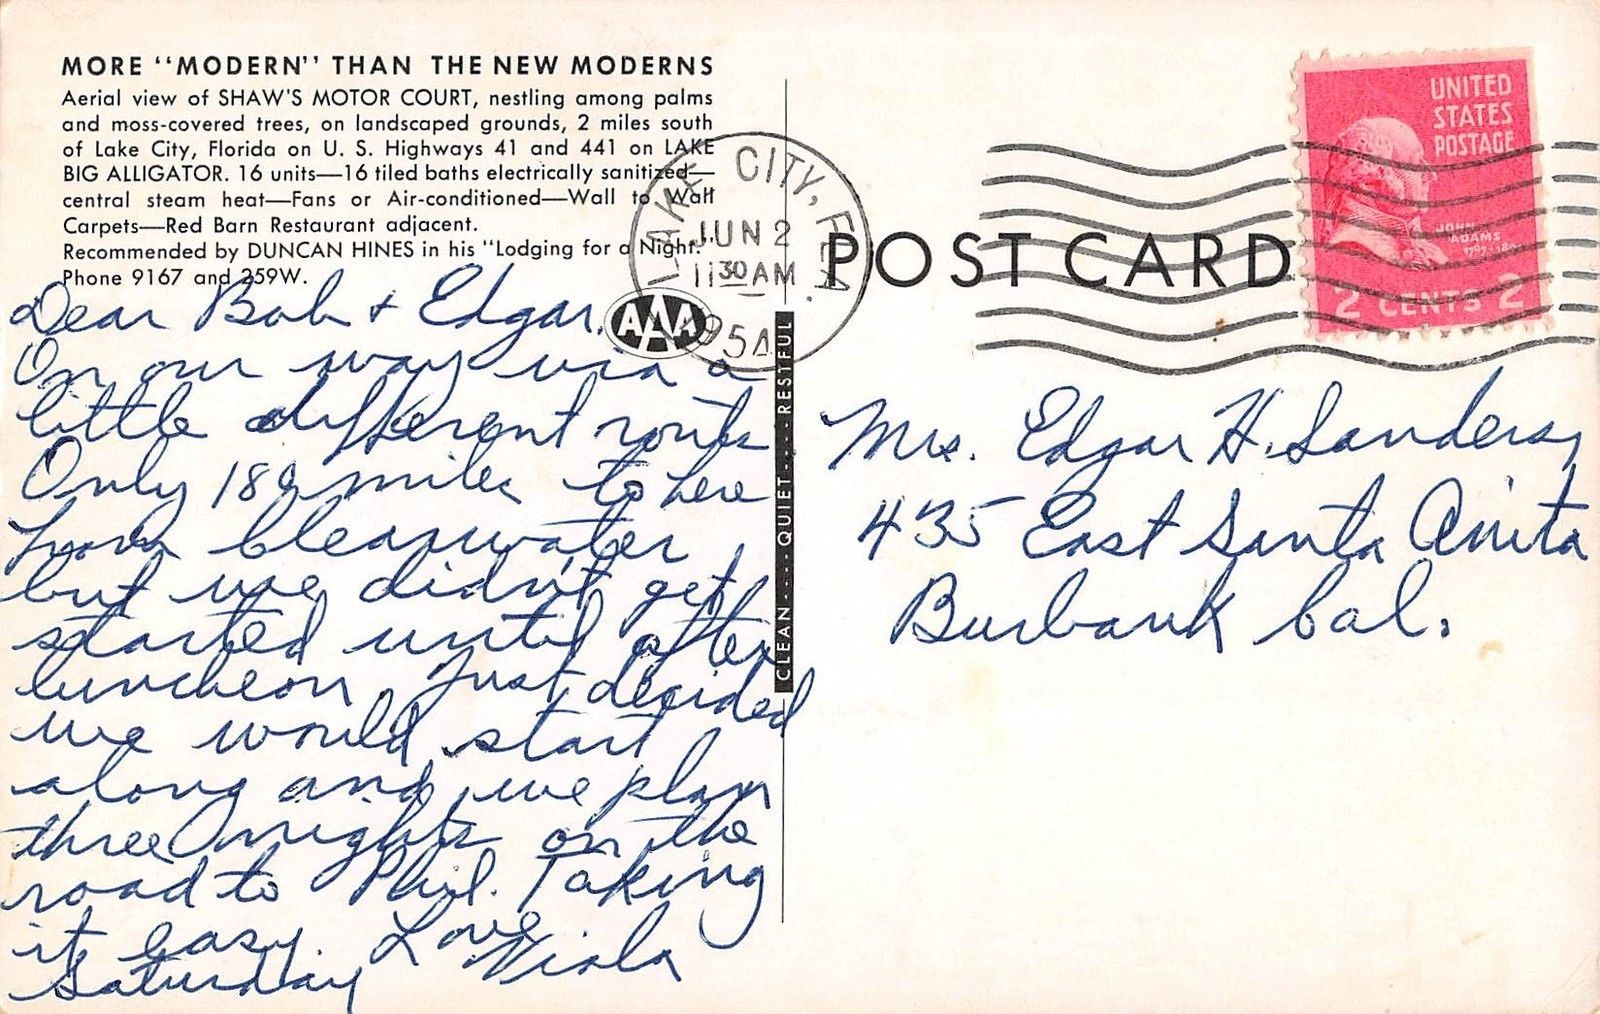 MORE "MODERN" THAN THE NEW MODERNS
Aerial view of SHAW'S MOTOR COURT, nestling among palms
and moss-covered trees, on landscaped grounds, 2 miles south
of Lake City, Florida on U. S. Highways 41 and 441 on LAKE
BIG ALLIGATOR. 16 units—16 tiled baths electrically sanitized—
central steam heat—Fans or Air-conditioned—Wall to Wall
Carpets—Red Barn Restaurant adjacent.
Recommended by DUNCAN HINES in his "Lodging for a Night."
Phone 9167 and 259W.
AAA
Dear Bob & Edgar,
On our way via a
little different route
Only 180 miles to here
from Clearwater,
but we didn't get
started until after
luncheon. Just decided
we would start
along and we plan
three nights on the
road to Phil. Taking
it easy. Love
Saturday Viola
CLEAN----QUIET----RESTFUL
LAKE CITY, FLA.
JUN 2
11 30 AM
1954
POST CARD
UNITED
STATES
POSTAGE
JOHN
ADAMS
2 CENTS 2
Mrs. Edgar H. Sanders,
435 East Santa Anita
Burbank Cal.